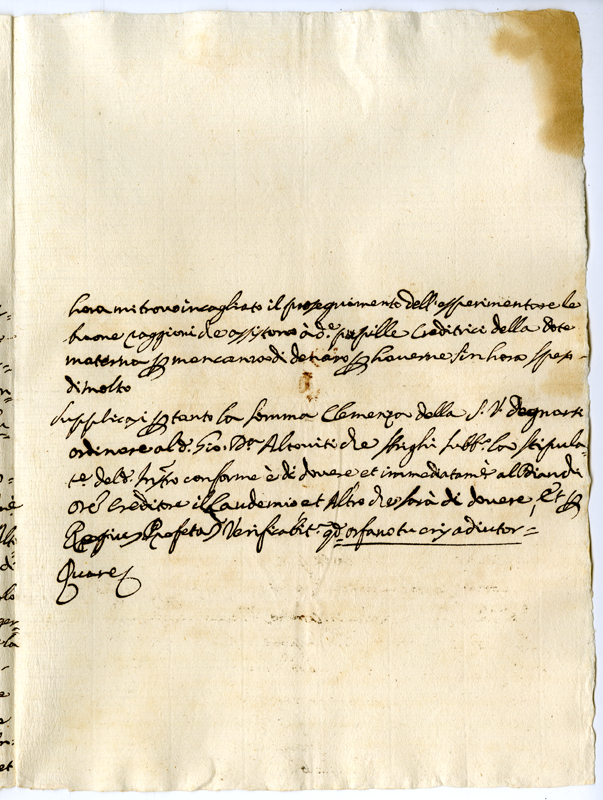 hora mi trovo incagliato il proseguimento dell'esperimentare le
buone raggioni che assistono à d.e pupille Creditrici della dote
materna per mancanza di denaro per haverne sin hora speso
di molto
Supplicasi per tanto la somma Clemenza della S. V. degnarsi
ordinare al d. Gio. Altoviti che sbrighi la stipula-
te del d. conforme è di dovere et immediatamte al
Creditore il Laudemio et Altro che sarà di dovere, Et per
Regius Profeta Verificabit.r orfano tu eris adiutor=
Quare